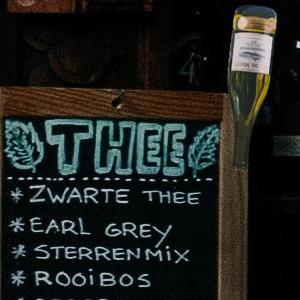 THEE
* ZWARTE THEE
* EARL GREY
* STERRENMIX
* ROOIBOS